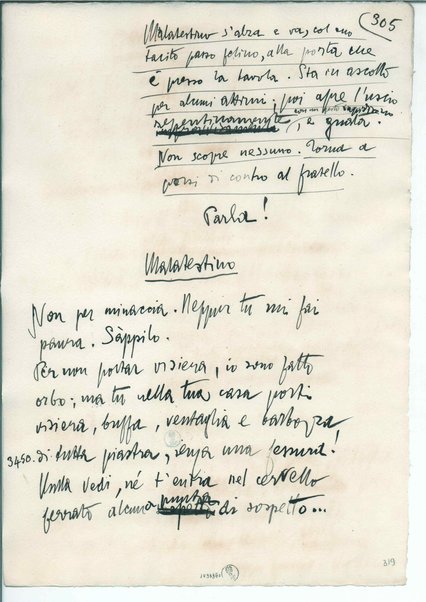 305
Malatestino s'alza e va, col suo
tacito passo felino, alla porta che
è presso la tavola. Sta in ascolto
per alcuni attimi; poi apre l'uscio
con un moto rapidissimo
repentinamente, e guata.
Non scopre nessuno. Torna a
porsi di contro al fratello.
Parla!
Malatestino
Non per minaccia. Neppur tu mi fai
paura. Sàppilo.
Per non portar visiera, io sono fatto
orbo; ma tu nella tua casa porti
visiera, buffa, ventaglia e barbozza
3450. di tutta piastra, senza una fessura!
Nulla vedi, né t'entra nel cervello
ferrato alcuna punta di sospetto...
319